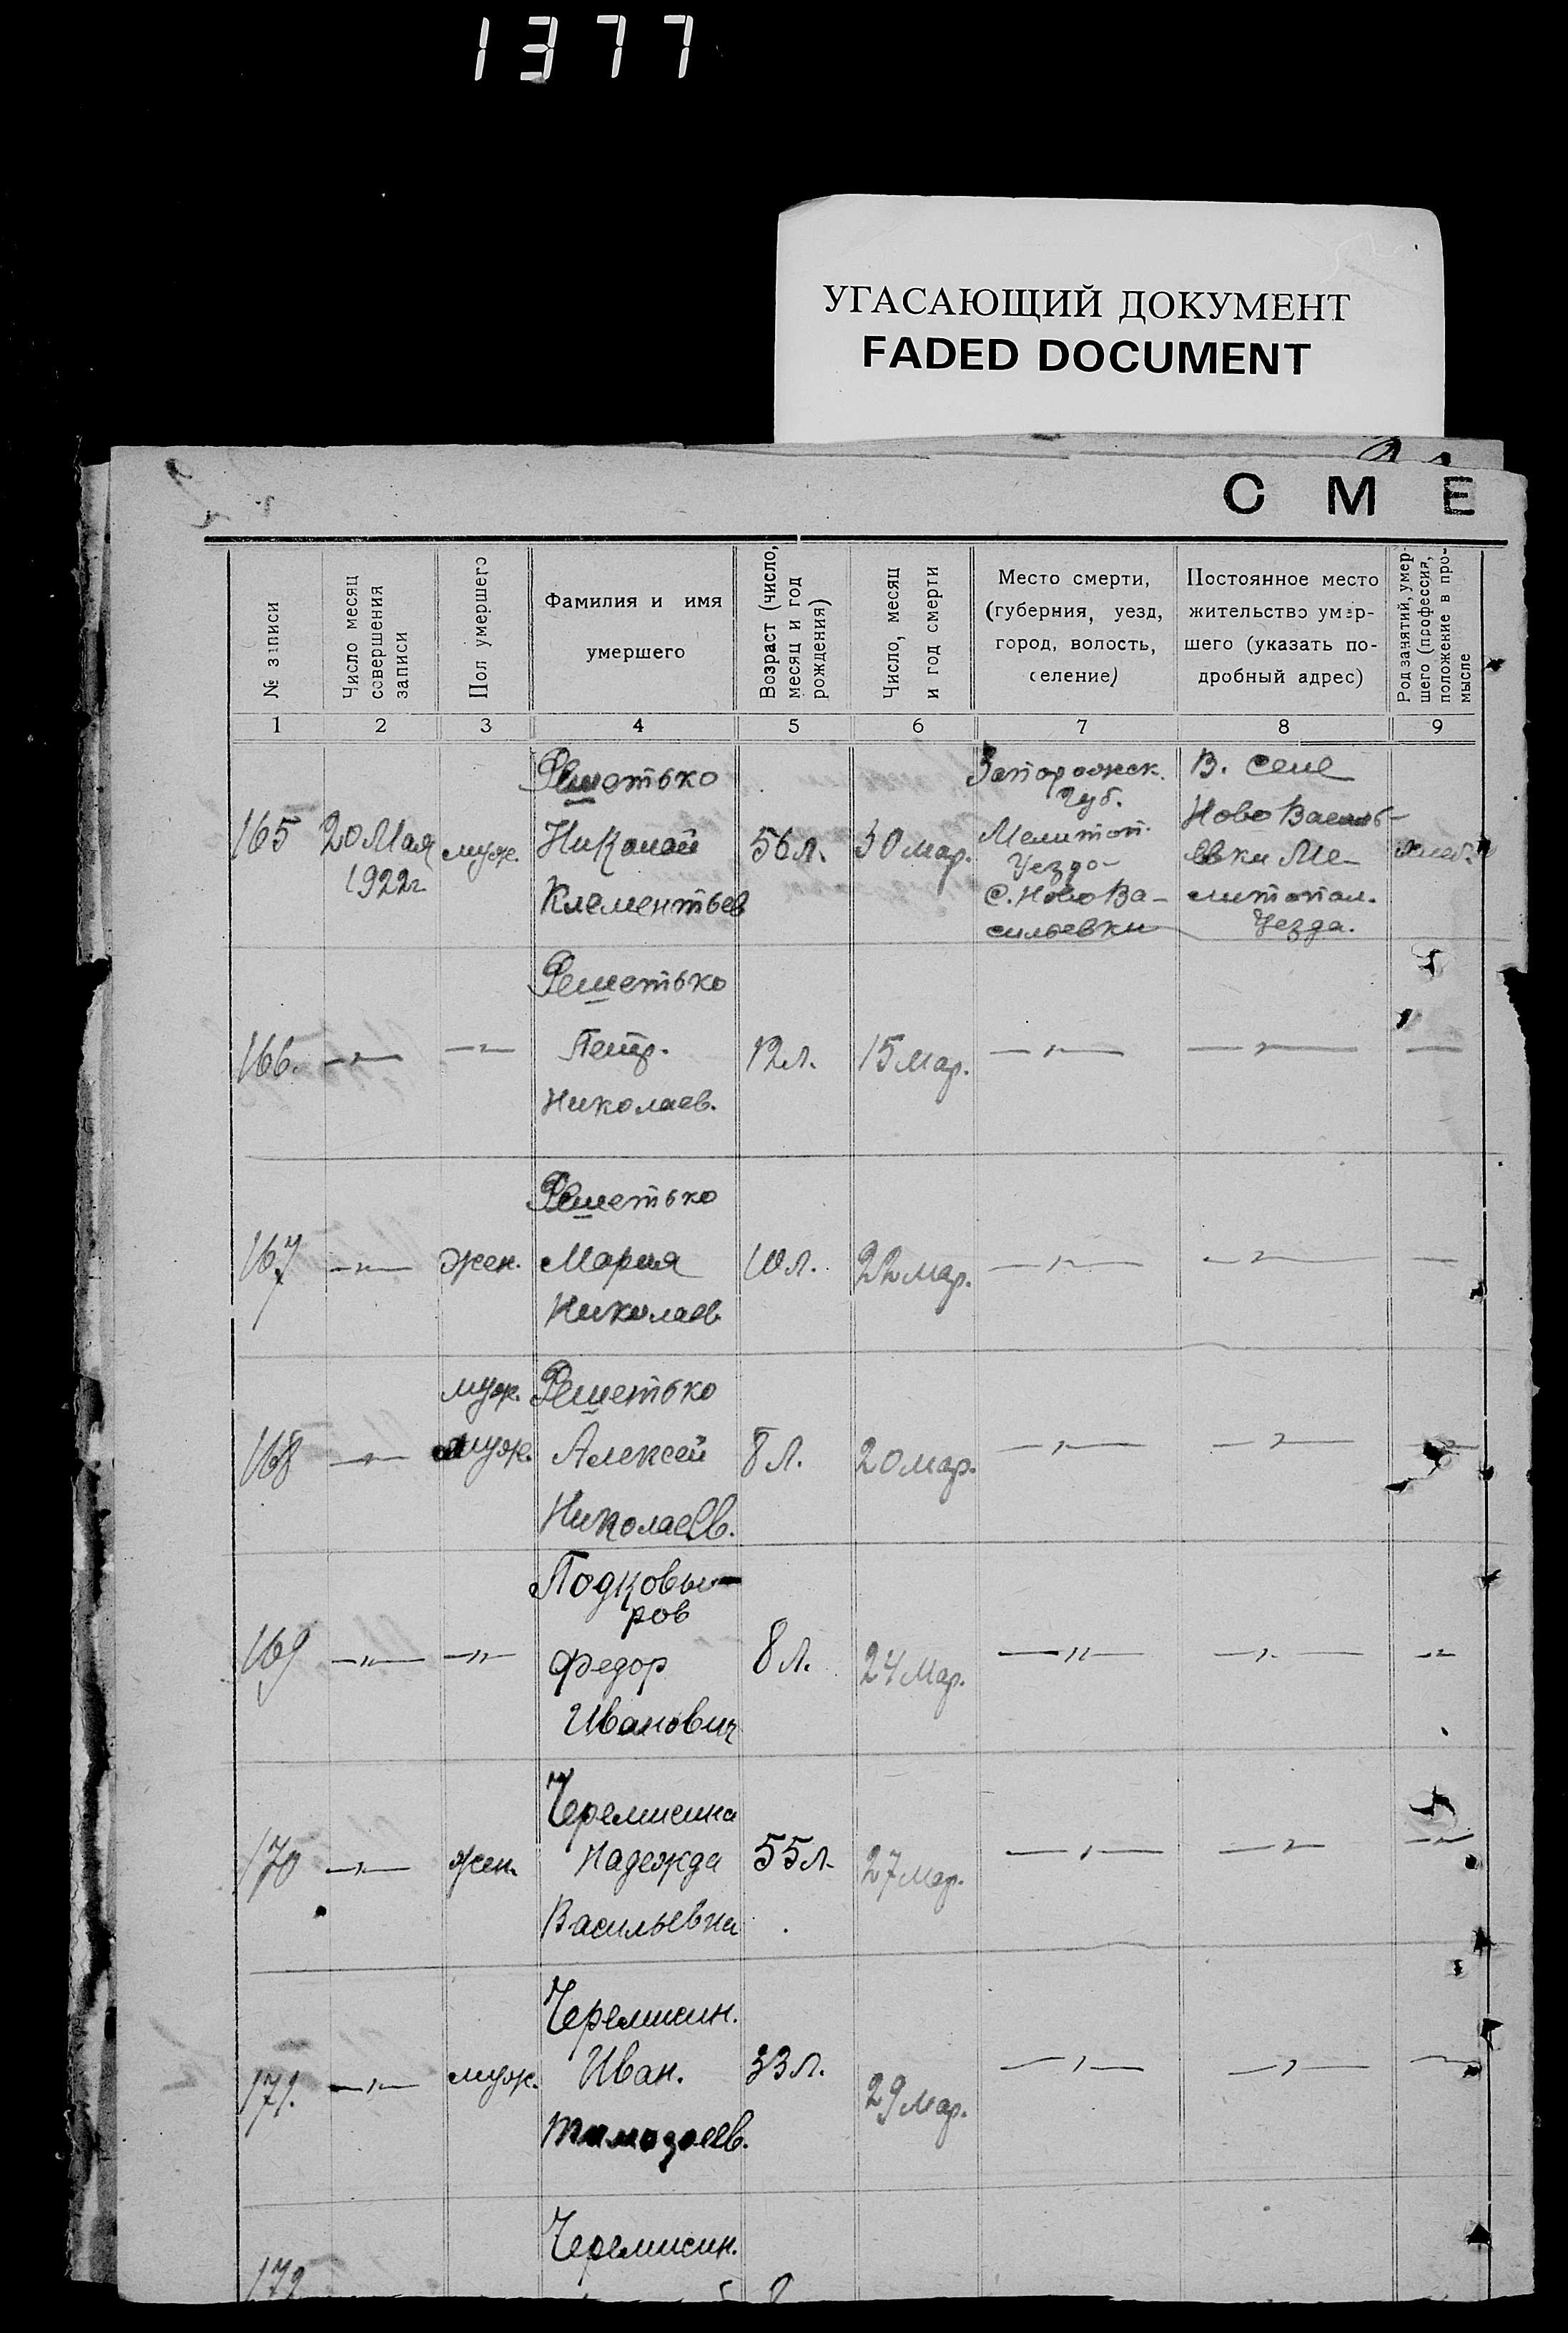 1377
УГАСАЮЩИЙ ДОКУМЕНТ
FADED DOCUMENT
С М Е
№ записи
Число месяц совершения записи
Пол умершего
Фамилия и имя умершего
Возраст (число, месяц и год рождения)
Число, месяц и год смерти
Место смерти, (губерния, уезд, город, волость, селение)
Постоянное место жительство умершего (указать подробный адрес)
Род занятий, умершего (профессия, положение в промысле
1 2 3 4 5 6 7 8 9
165
20 Мая
1922г
муж.
Решетько
Николай
Клементьев
56 л.
30 мар.
Запорожск.
Губ.
Мелитоп.
Уездо-
С. Ново Ва-
сильевки
В. селе
Ново Василь-
евки Ме-
литопол.
Уезда.
166. —"— —"—
Решетько
Петр.
Николаев.
12 л. 15 мар. —"— —"— —
167 —"— жен.
Решетько
Мария
Николаев
10 л. 22 мар. —"— —"— —
168 —"—
муж.
муж.
Решетько
Алексей
Николаев.
8 л. 20 мар. —"— —"—
169 —"— —"—
Подковы-
ров
Федор
Иванович
8 л. 24 мар. —"— —"— —"—
170 —"— жен.
Черемисина
Надежда
Васильевна
55 л. 27 мар. —"— —"— —"—
171. —"— муж.
Черемисин.
Иван.
33 л. 29 мар. —"— —"—
172
Черемисин.